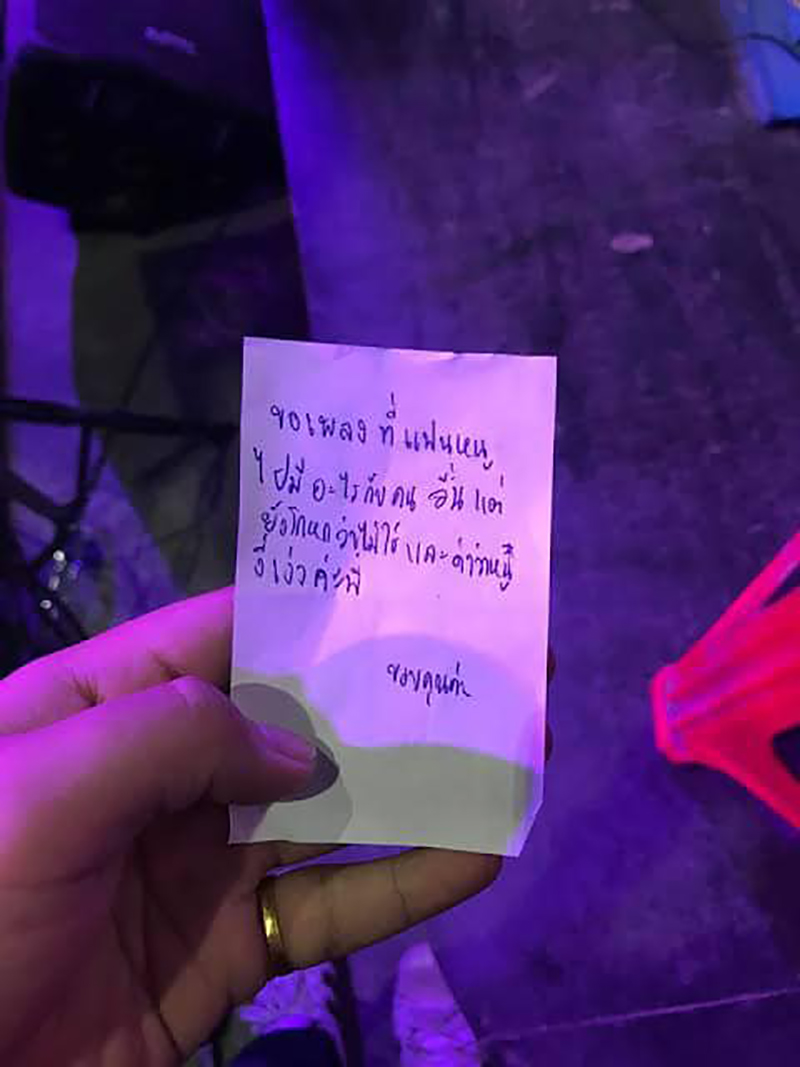 ขอเพลง ที่ แฟนหนู
ไปมี อะไรกับ คน อื่น แต่
ยังโกหกว่าไม่ใช่ และ ด่าว่าหนู
งี่เง่าค่ะพี่
ขอบคุณค่ะ